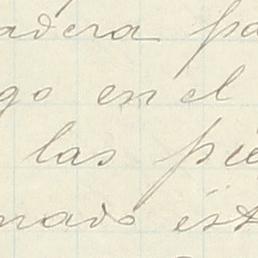 adera pa
go en el
las pie
nado ést